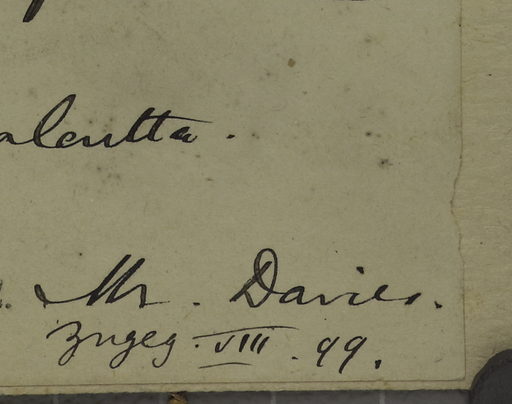 alcutta.
Mr. Davies.
zugeg. VIII. 99.